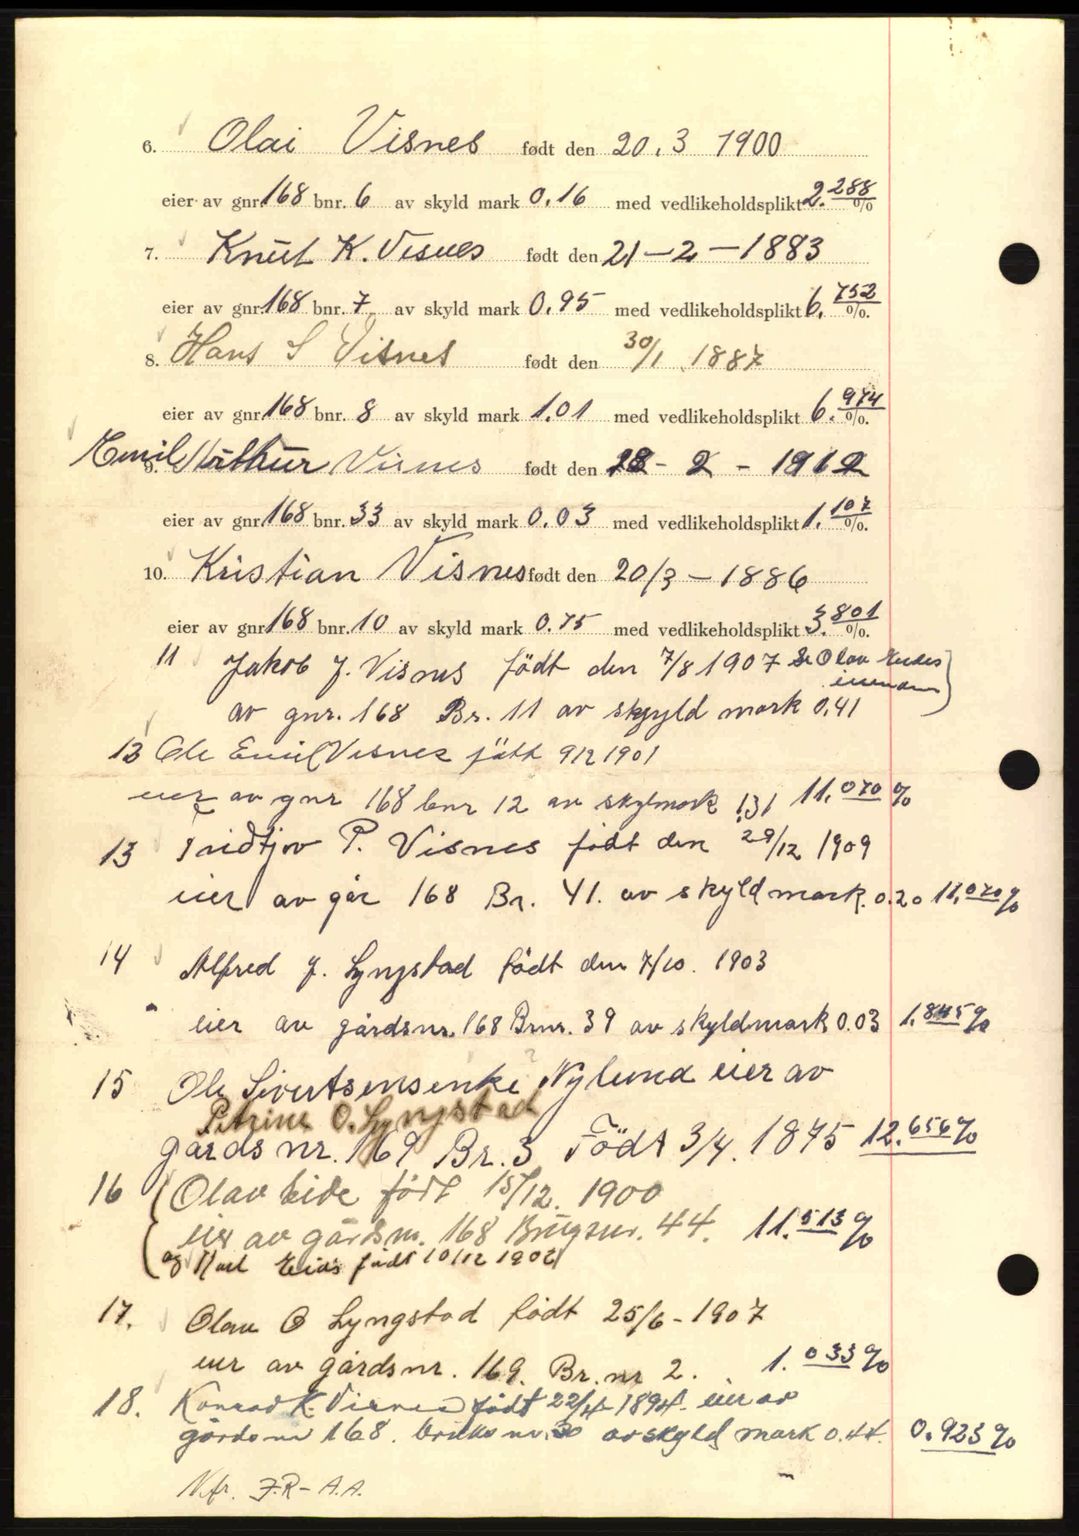 6. Olai Visnes født den 20. 3 1900
eier av gnr. 168 bnr. 6 av skyld mark 0.16 med vedlikeholdsplikt 2.288 %
7. Knut K. Visnes født den 21 – 2 – 1883
eier av gnr. 168 bnr. 7 av skyld mark 0.95 med vedlikeholdsplikt 6.752 %.
8. Hans S Visnes født den 30/1 1887
eier av gnr. 168 bnr. 8 av skyld mark 1.01 med vedlikeholdsplikt 6.974 %.
9. Emil Arthur Visnes født den 28 - 2 - 1912
eier av gnr. 168 bnr. 33 av skyld mark 0.03 med vedlikeholdsplikt 1.107 %.
10. Kristian Visnes født den 20/3 – 1886
eier av gnr. 168 bnr. 10 av skyld mark 0.75 med vedlikeholdsplikt 3.801 %.
11 Jakob J. Visnes födt den 7/8 1907 Olav
av gnr. 168 Br. 11 av skjyld mark 0,41
Ole Emil Visnes född 9/12 1901
eier av gnr 168 bnr 12 av skylmork 1,31 11.070 %
13 Fridtjov P. Visnes födt den 29/12 1909
eier av går 168 Br. 41. av skyld mark. 0.20 11.070 %
14 Alfred J. Lyngstad födt den 7/10. 1903
eier av gårdsnr. 168 Brnr. 39 av skyldmark 0.03 1.845 %
15 Ole Sivertsensenke Nylund eier av
Petrine O. Lyngstad
gårdsnr. 169 Br. 3 Födt 3/4. 1875 12.656 %
16 Olav Eide födt 15/12. 1900
eier av gårdsnr. 168 Brugsnr. 44. 11.513 %
og Eide födt 10/12 1902
17. Olav O Lyngstad födt 25/6 - 1907
eier av gårdsnr. 169. Br. nr 2. 1.033 %
18. Konrad K. Visnes födt 22/4 - 1894. eier av
gårdsnr 168. bruksnr. 30 av skyld mark 0.44. 0.923 %
N.fr. J.R – A.A.